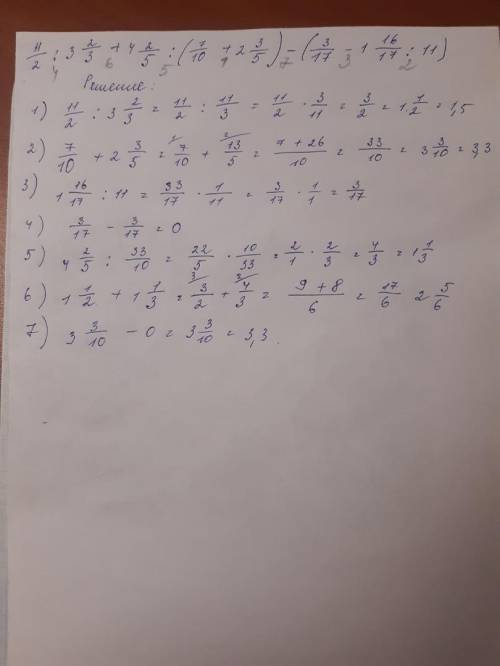 11/2 : 3 2/3 + 4 2/5 : (7/10 + 2 3/5) - (3/17 - 1 16/17 : 11)
4 6 5 1 7 3 2
Решение:
1) 11/2 : 3 2/3 = 11/2 : 11/3 = 11/2 · 3/11 = 3/2 = 1 1/2 = 1,5
2) 7/10 + 2 3/5 = 7/10 + 13/5 = 7 + 26/10 = 33/10 = 3 3/10 = 3,3
3) 1 16/17 : 11 = 33/17 · 1/11 = 3/17 · 1/1 = 3/17
4) 3/17 - 3/17 = 0
5) 4 2/5 : 33/10 = 22/5 · 10/33 = 2/1 · 2/3 = 4/3 = 1 1/3
6) 1 1/2 + 1 1/3 = 3/2 + 4/3 = 9 + 8/6 = 17/6 2 5/6
7) 3 3/10 - 0 = 3 3/10 = 3,3.